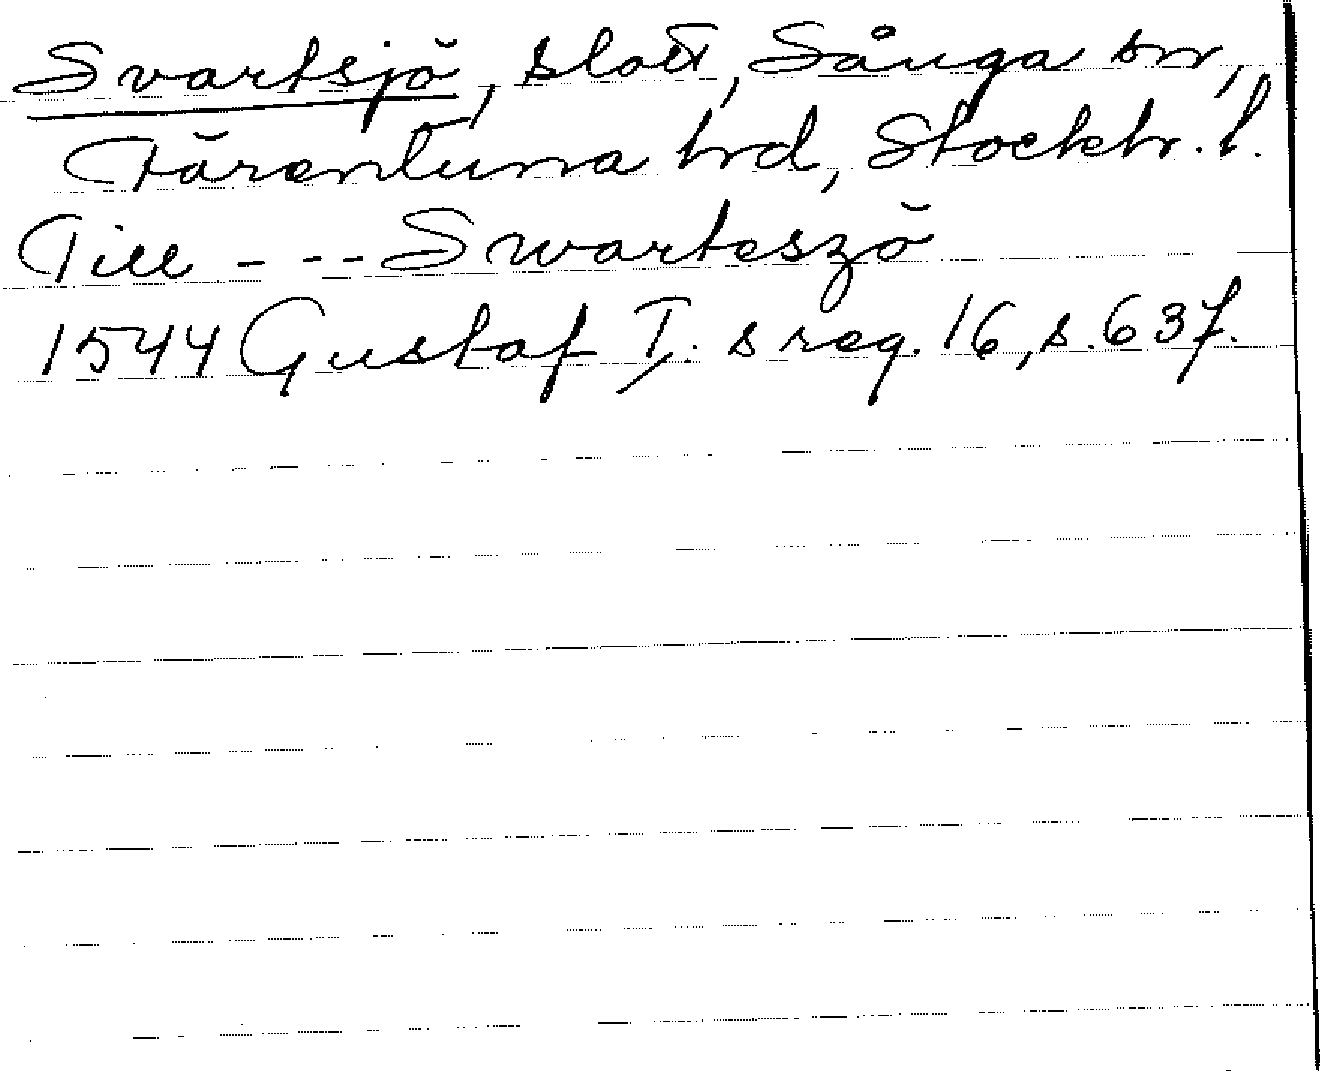 Svartsjö, slott, Sånga sn,
Färentuna hd, Stockh. l.
Till - - - Swarteszö
1544 Gustaf I. s reg. 16, s. 637.